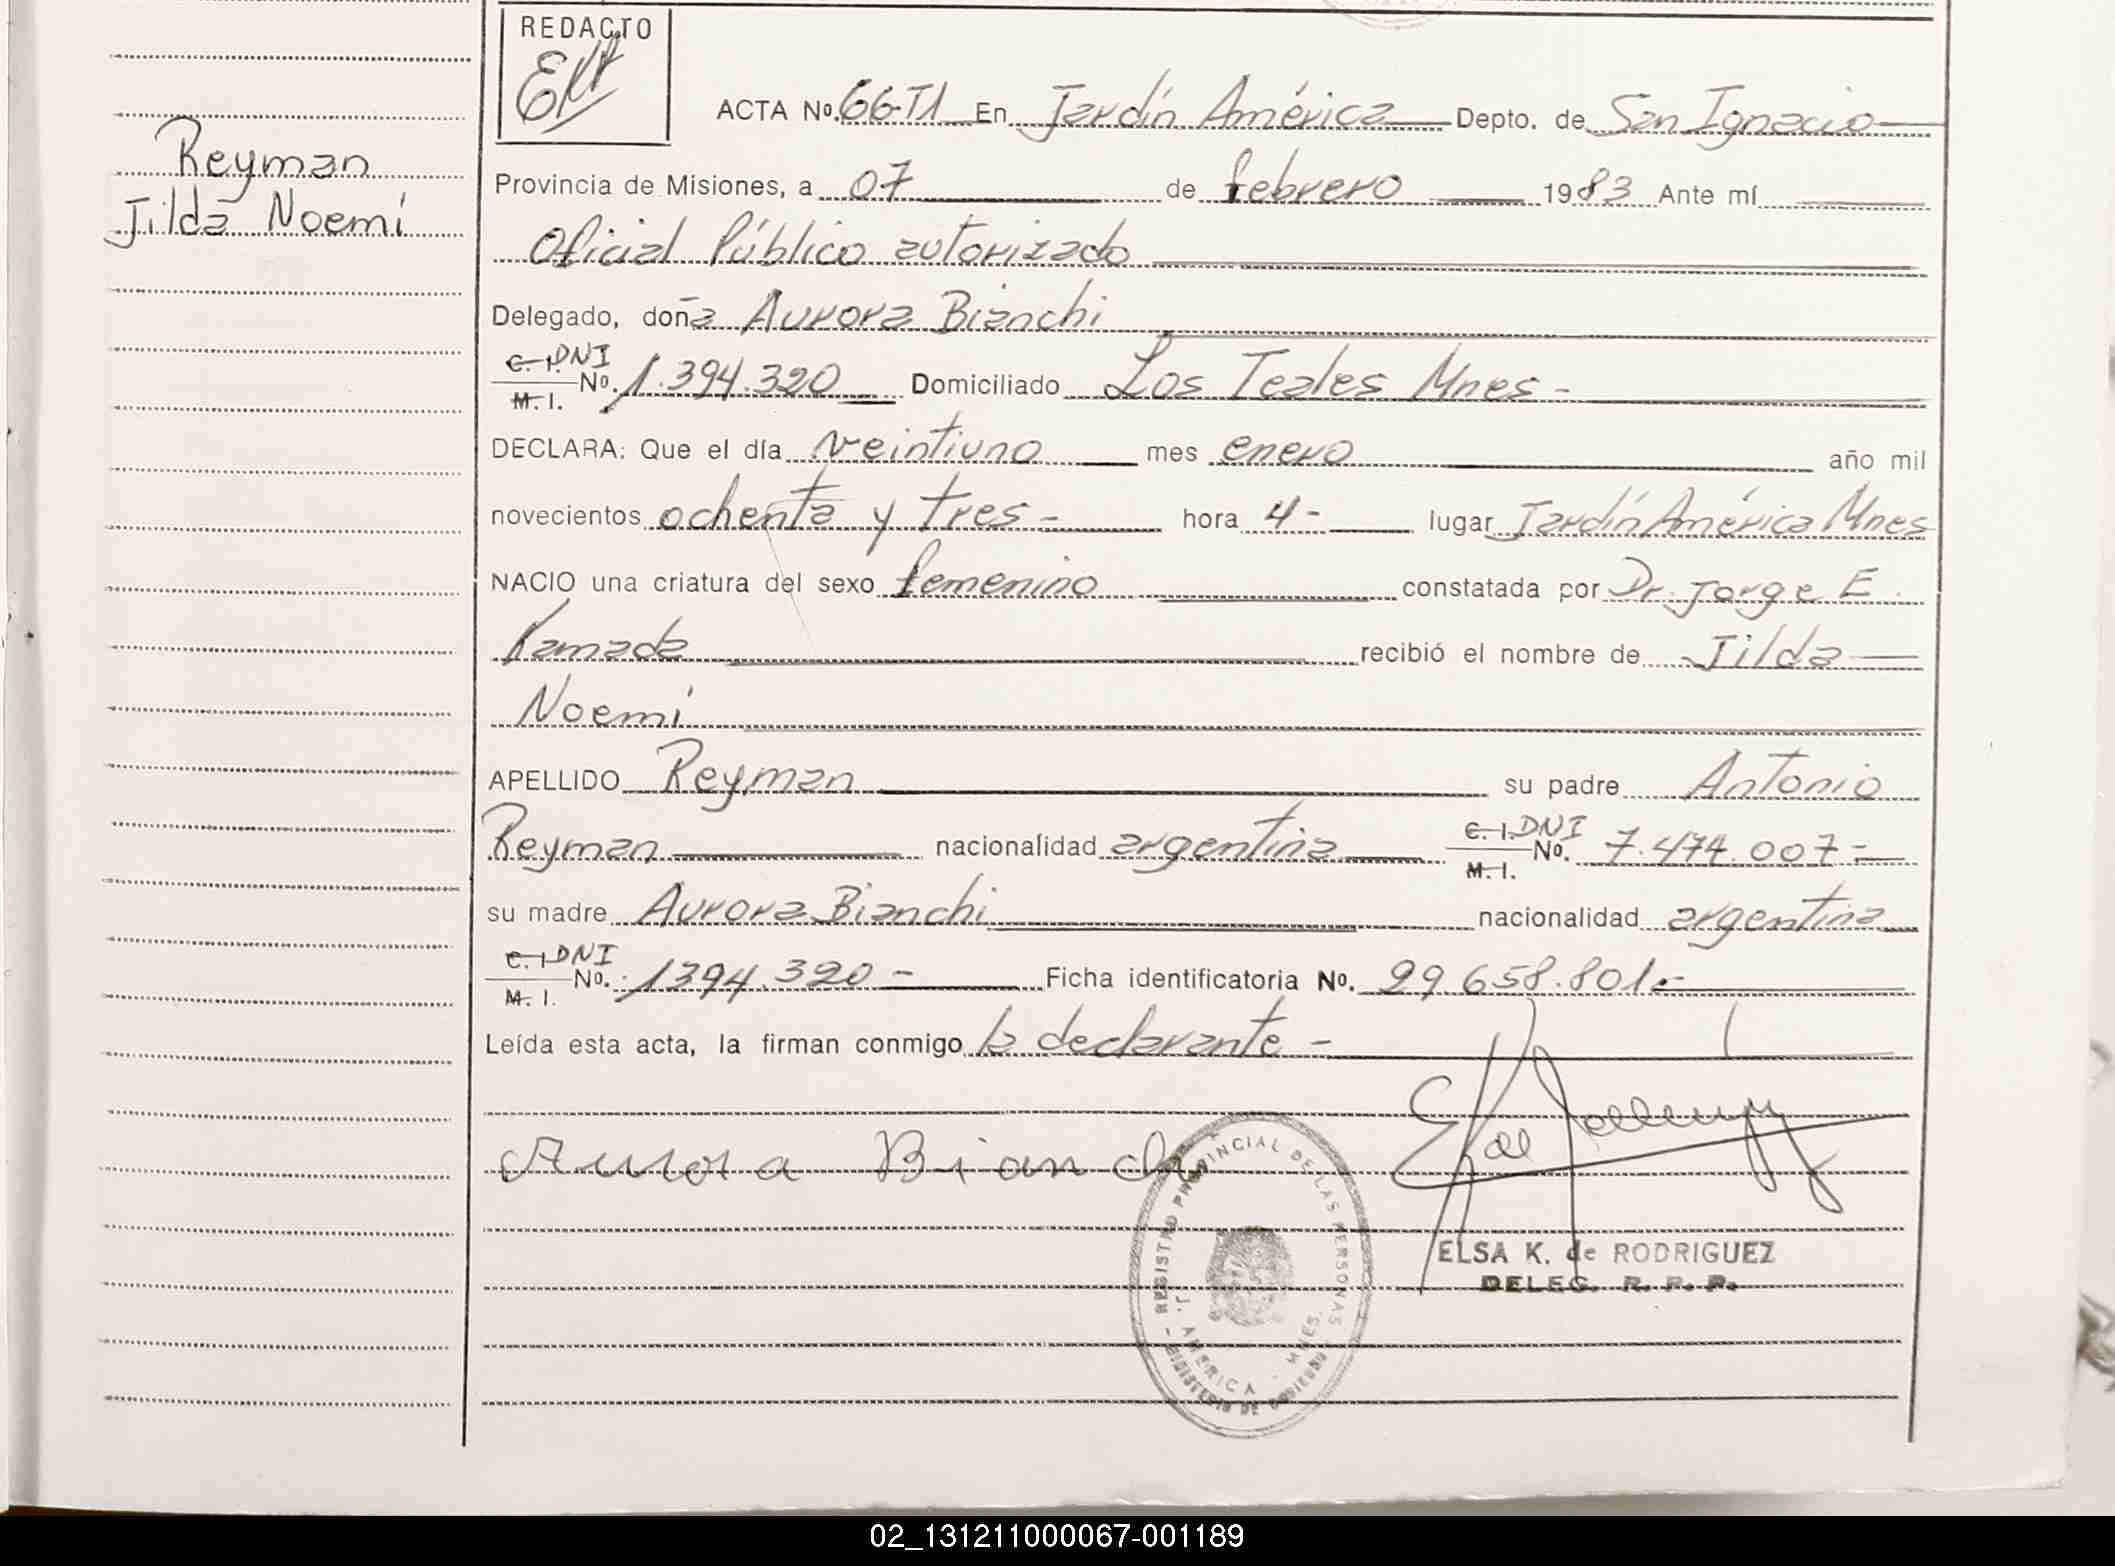 REDACTO
ACTA No. 66-T1 En Jardín América Depto. de San Ignacio
Reyman
Jilda Noemí
Provincia de Misiones, a 07 de febrero 1983 Ante mí
Oficial Público autorizado
Delegado, doña Aurora Bianchi
C. I. DNI
M. I. No. 1.394.320 Domiciliado Los Teales Mnes-
DECLARA: Que el día veintiuno mes enero año mil
novecientos ochenta y tres- hora 4- lugar Jardín América Mnes
NACIO una criatura del sexo femenino constatada por Dr. Jorge E.
Kamada recibió el nombre de Jilda
Noemí
APELLIDO Reyman su padre Antonio
Reyman nacionalidad argentina C. I. DNI M. I. No. 7.474.007-
su madre Aurora Bianchi nacionalidad argentina
C. I. DNI
M. I. No. 1394.320- Ficha identificatoria No. 29.658.801.-
Leída esta acta, la firman conmigo la declarante-
Aurora Bianchi
REGISTRO PROVINCIAL DE LAS PERSONAS
J. AMERICA - MNES.
MINISTERIO DE GOBIERNO
ELSA K. de RODRIGUEZ
DELEG. R. P. P.
02_131211000067-001189